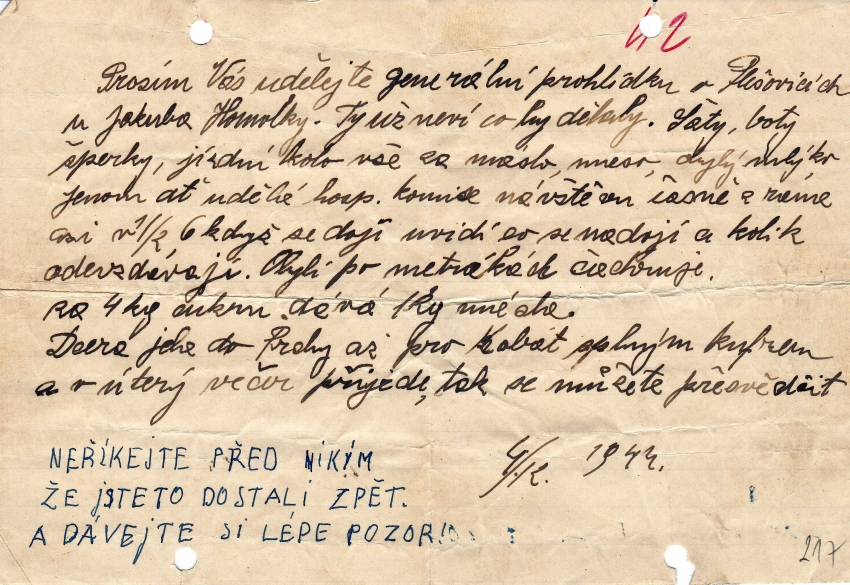 42
Prosím Vás udělejte generální prohlídku v Plešovicích
u Jakuba Homolky. Ty už neví co by dělaly. Šaty, boty
šperky, jízdní kolo vše za maslo, meso,
jenom ať udělá hosp. komise návštěvu časně z rána
asi v 1/2 6 když se dojí uvidí co se nadojí a kolik
oderzdávají. Obylí po metrákách čachruje.
za 4 kg cukru dává 1 kg
Dcera jde do Prahy až pro kabát s plným kufrem
a v úterý večer přijede, tak se můžete přesvědčit
4/12. 1944.
NEŘÍKEJTE PŘED NIKÝM
ŽE JSTETO DOSTALI ZPĚT.
A DÁVEJTE SI LÉPE POZOR!
217